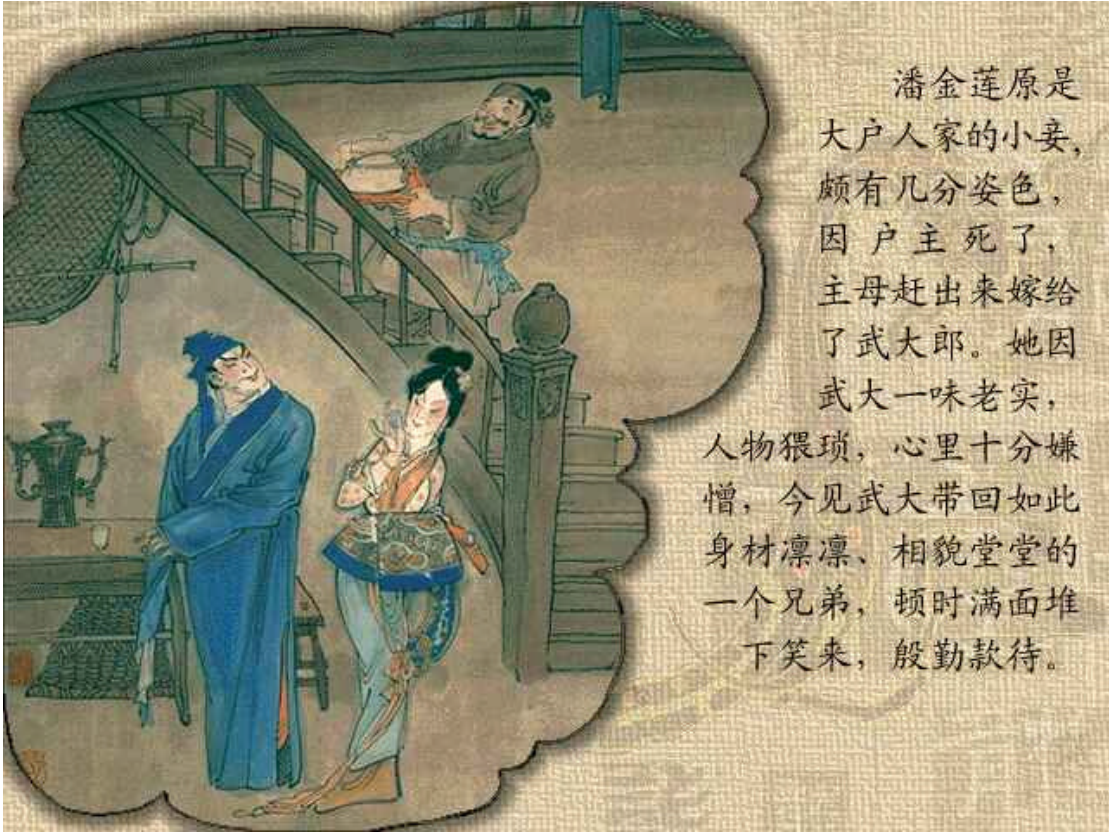 潘金莲原是
大户人家的小妾，
颇有几分姿色，
因户主死了，
主母赶出来嫁给
了武大郎。她因
武大一味老实，
人物猥琐，心里十分嫌
憎，今见武大带回如此
身材凛凛、相貌堂堂的
一个兄弟，顿时满面堆
下笑来，殷勤款待。